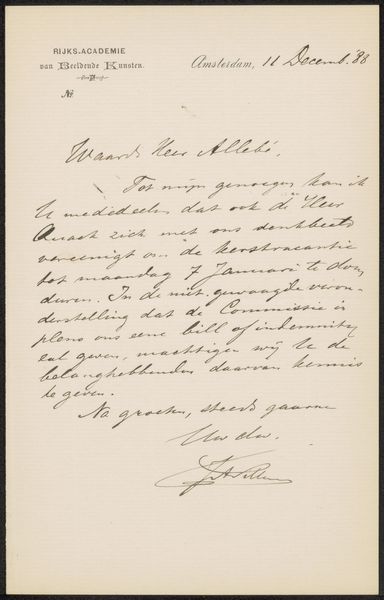 RIJKS-ACADEMIE
van Beeldende Kunsten.
No.
Amsterdam, 11 Decemb. '88
Waarde Heer Allebé,
Tot mijn genoegen kan ik
U mededeelen dat ook de Heer
Quack zich met ons denkbeeld
vereenigt om de kerstvacantie
tot maandag 7 Januari te doen
duren. In de niet gewaagde veron-
derstelling dat de Commissie in
pleno ons eene bill of indemnity
zal geven, machtigen wij U de
belanghebbenden daarvan kennis
te geven.
Na groeten, steeds gaarne
Uw dw.